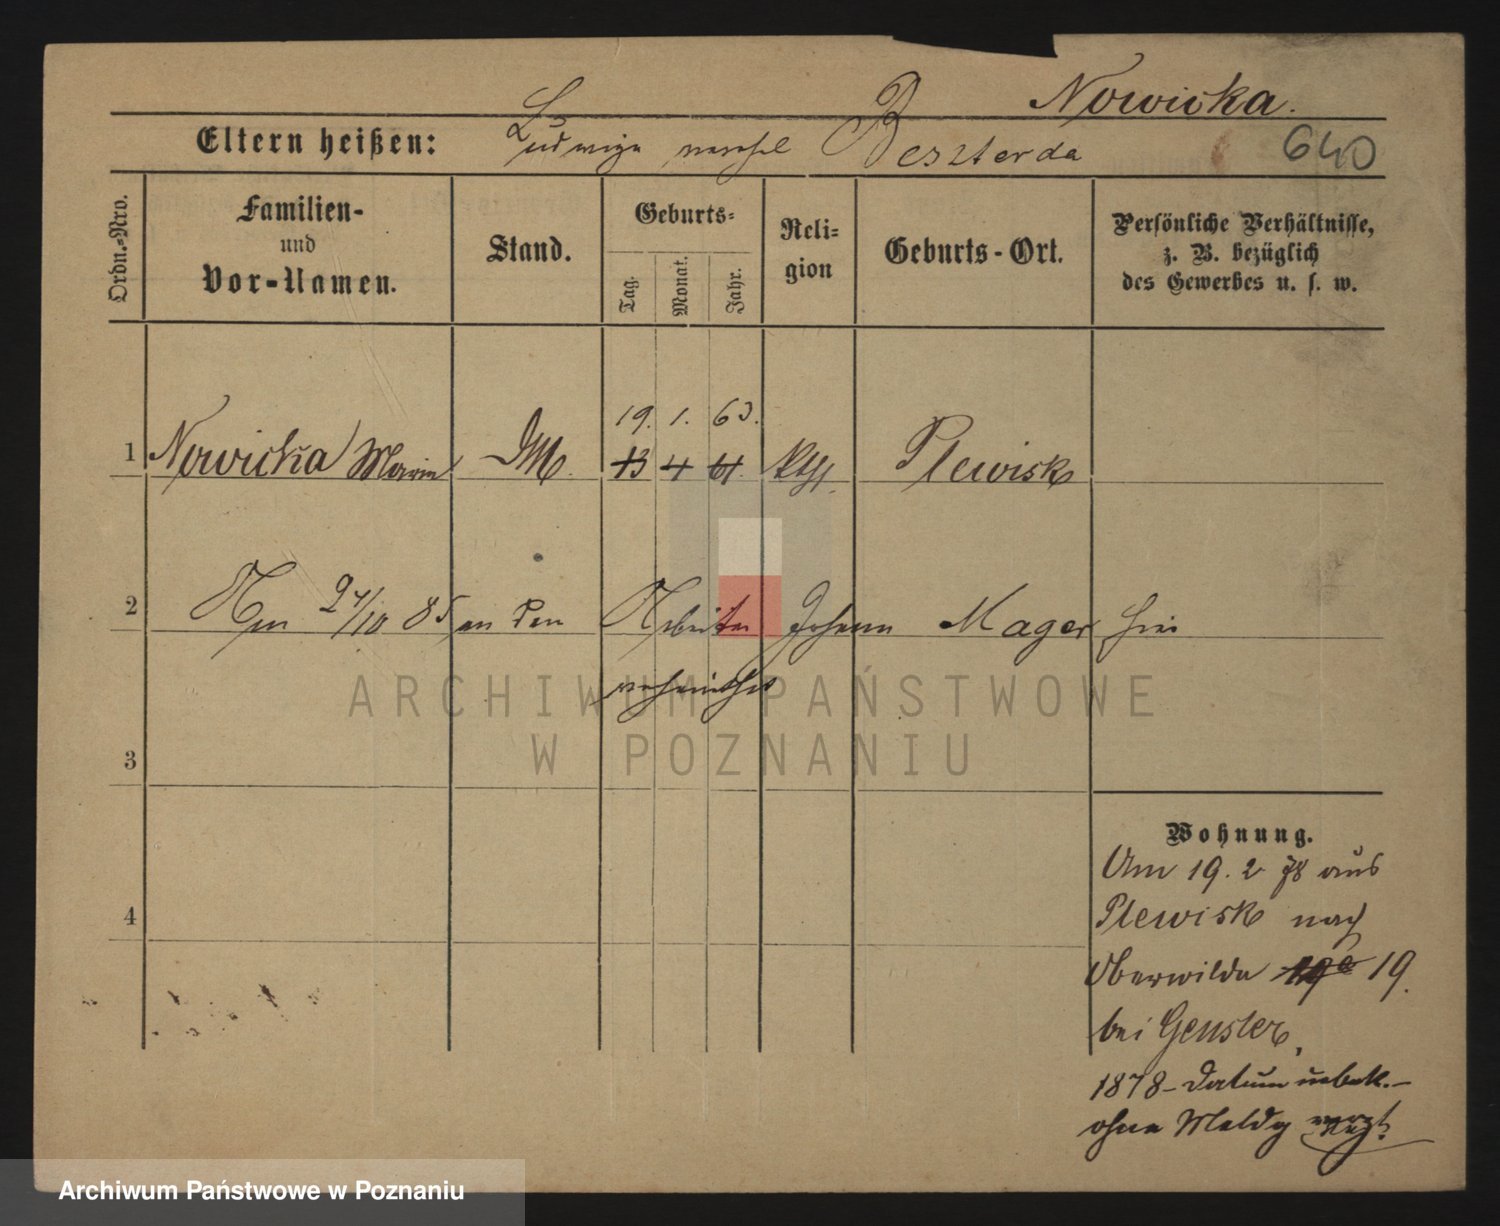 Nowicka.
Eltern heißen: Ludwiga Beszterda
640
Ordn.=Nro.
Familien-
und
Vor-Namen.
Stand.
Geburts=
Tag.
Monat.
Jahr.
Reli=
gion
Geburts-Ort.
Persönliche Verhältnisse,
z. B. bezüglich
des Gewerbes u. s. w.
19. 1. 63.
1 Nowicka Marie M. 13 4 61. Kth. Plewisk
2 Am 27/10 85 an den Arbeiter Johann Mager hier
verheirathet
ARCHIWUM PAŃSTWOWE
W POZNANIU
3
4
Wohnung.
Am 19. 2 78 aus
Plewisk nach
Oberwilda 19.
bei Gensler,
1878 - Datum unbek. -
ohne Meldg verzgt.
Archiwum Państwowe w Poznaniu